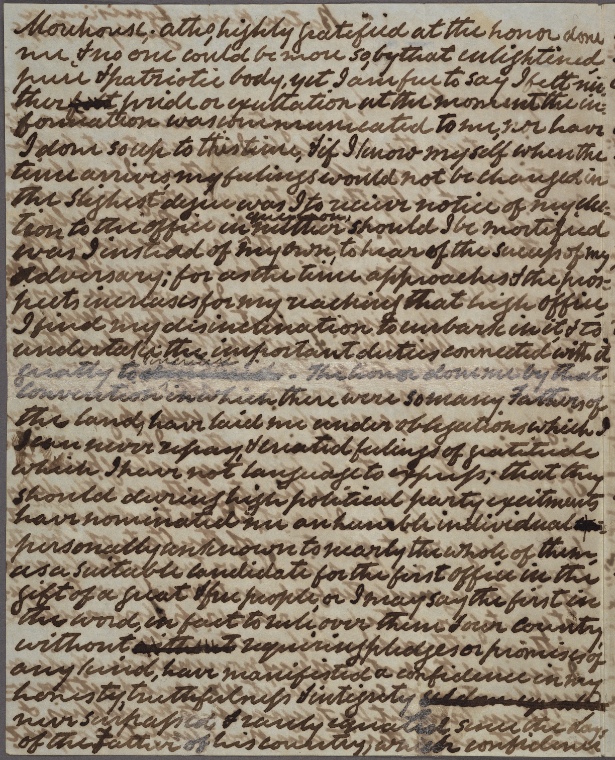 Morehouse. atho highly gratified at the honor done
me, & no one could be more so by that enlightened
pure & patriotic body, yet I am free to say I felt nei
ther pride or exultation at the moment the in
formation was communicated to me, nor have
I done so up to this time, & if I know myself when the
time arrives my feelings would not be changed in
the slighest degree was I to receive notice of my elec
tion to the office in question, neither should I be mortified
was I instead of my own, to hear of the success of my
adversary; for as the time approaches & the pros
pects increases for my reaching that high office,
I find my disinclination to embark in it, & to
undertake the important duties connected with it
greatly to The honor done me by that
Convention in which there were so many Fathers of
the land, have laid me under obligations which I
can never repay, & created feelings of gratitude
which I have not language to express; that they
should during high political party excitments
have nominated me an humble individual
personally unknown to nearly the whole of them
as a suitable candidate for the first office in the
gift of a great & free people, or I may say the first in
the word, in fact to rule over them & our country
without requiring pledges or promises of
any kind, have manifested a confidence in my
honesty, truthfulness & integrity
never surpassed & rarely equaled, since the days
of the Father of his country; confidence